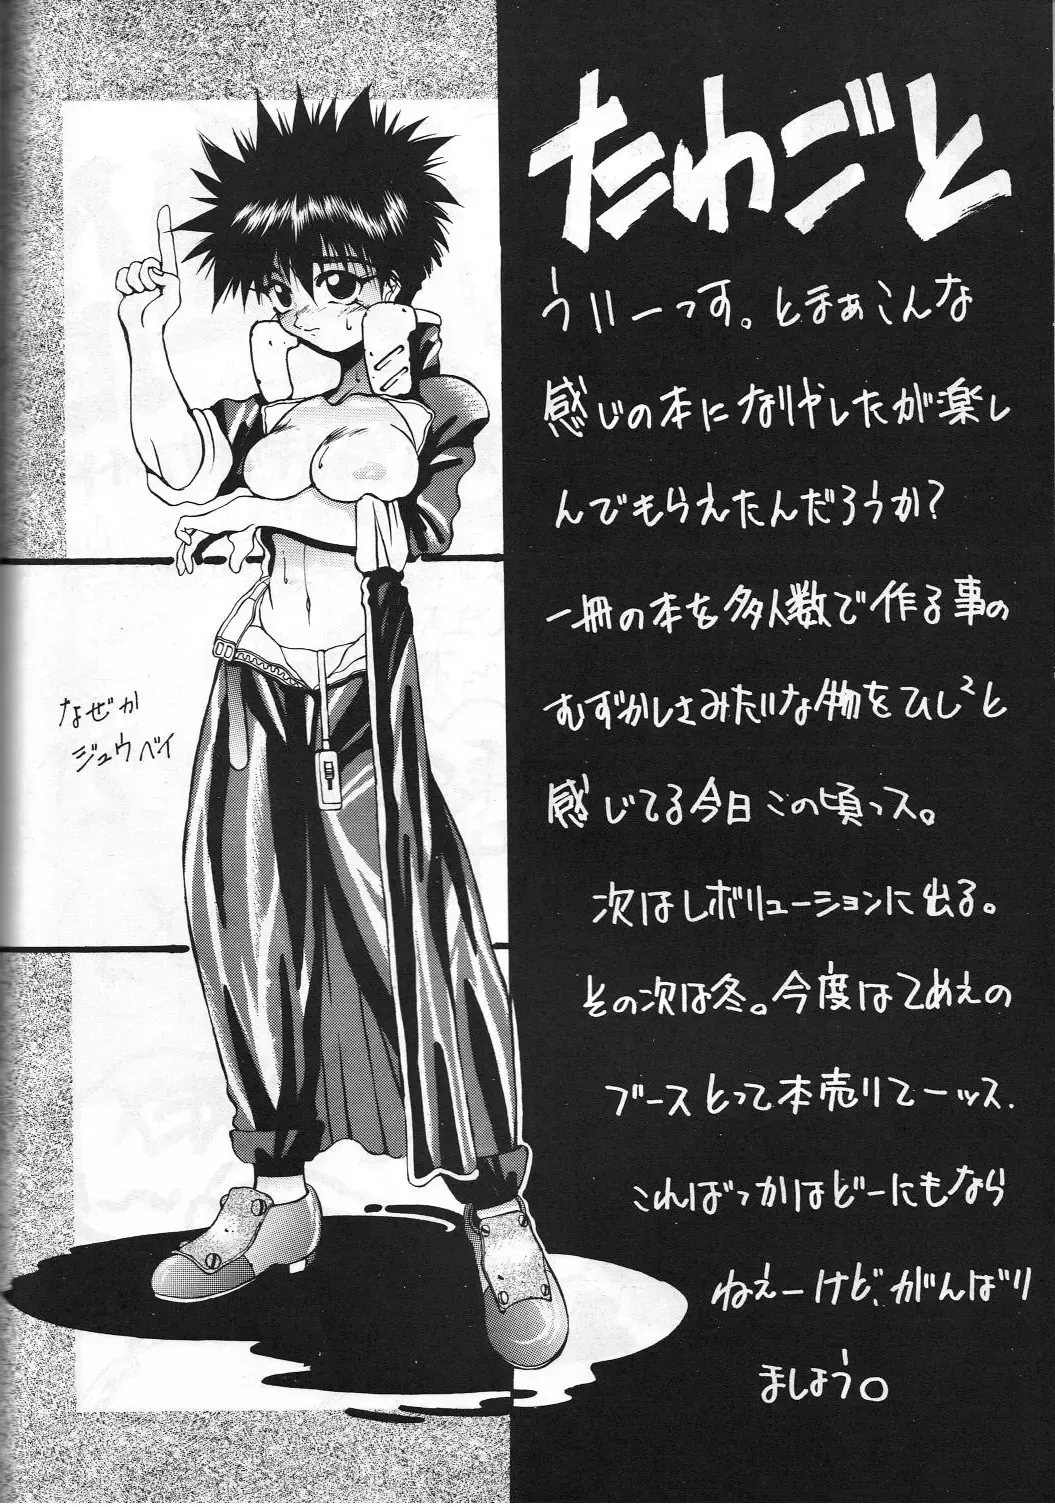 たわごと
ういーっす。とまぁこんな
感じの本になりやしたが楽し
んでもらえたんだろうか?
一冊の本を多人数で作る事の
むずかしさみたいな物をひし²と
感じてる今日この頃っス。
次はレボリューションに出る。
その次は冬。今度はてめえの
ブースとって本売りてーッス.
こればっかはどーにもなら
ねえーけど、がんばり
ましょう。
なぜか
ジュウベイ